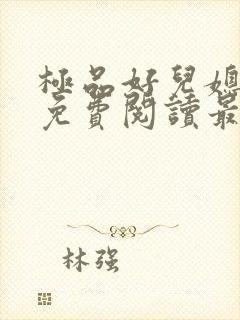 極品好兒媳
免費閱讀最
林强